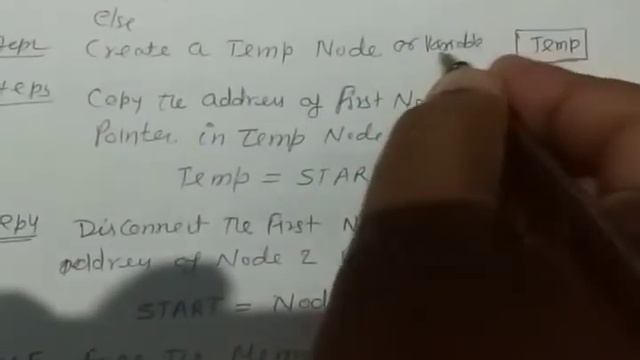 else
Create a Temp Node or Variable Temp
Copy the address of first
Pointer in Temp Node
Temp = STAR
Disconnect the first N
address of Node 2
START = Nod